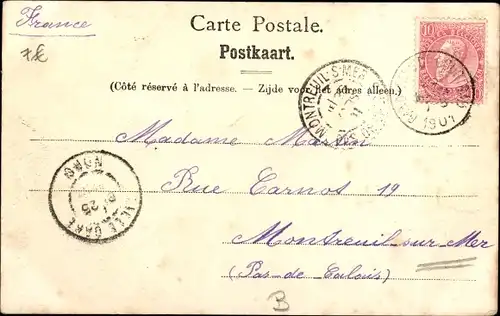 France
Carte Postale.
Postkaart.
(Côté réservé à l'adresse. — Zijde voor het adres alleen.)
10
MONTREUIL-S-MER
1901
Madame Martin
Rue Carnot 19
Montreuil-sur-Mer
(Pas-de-Calais)
LILLE GARE
NORD
25
B